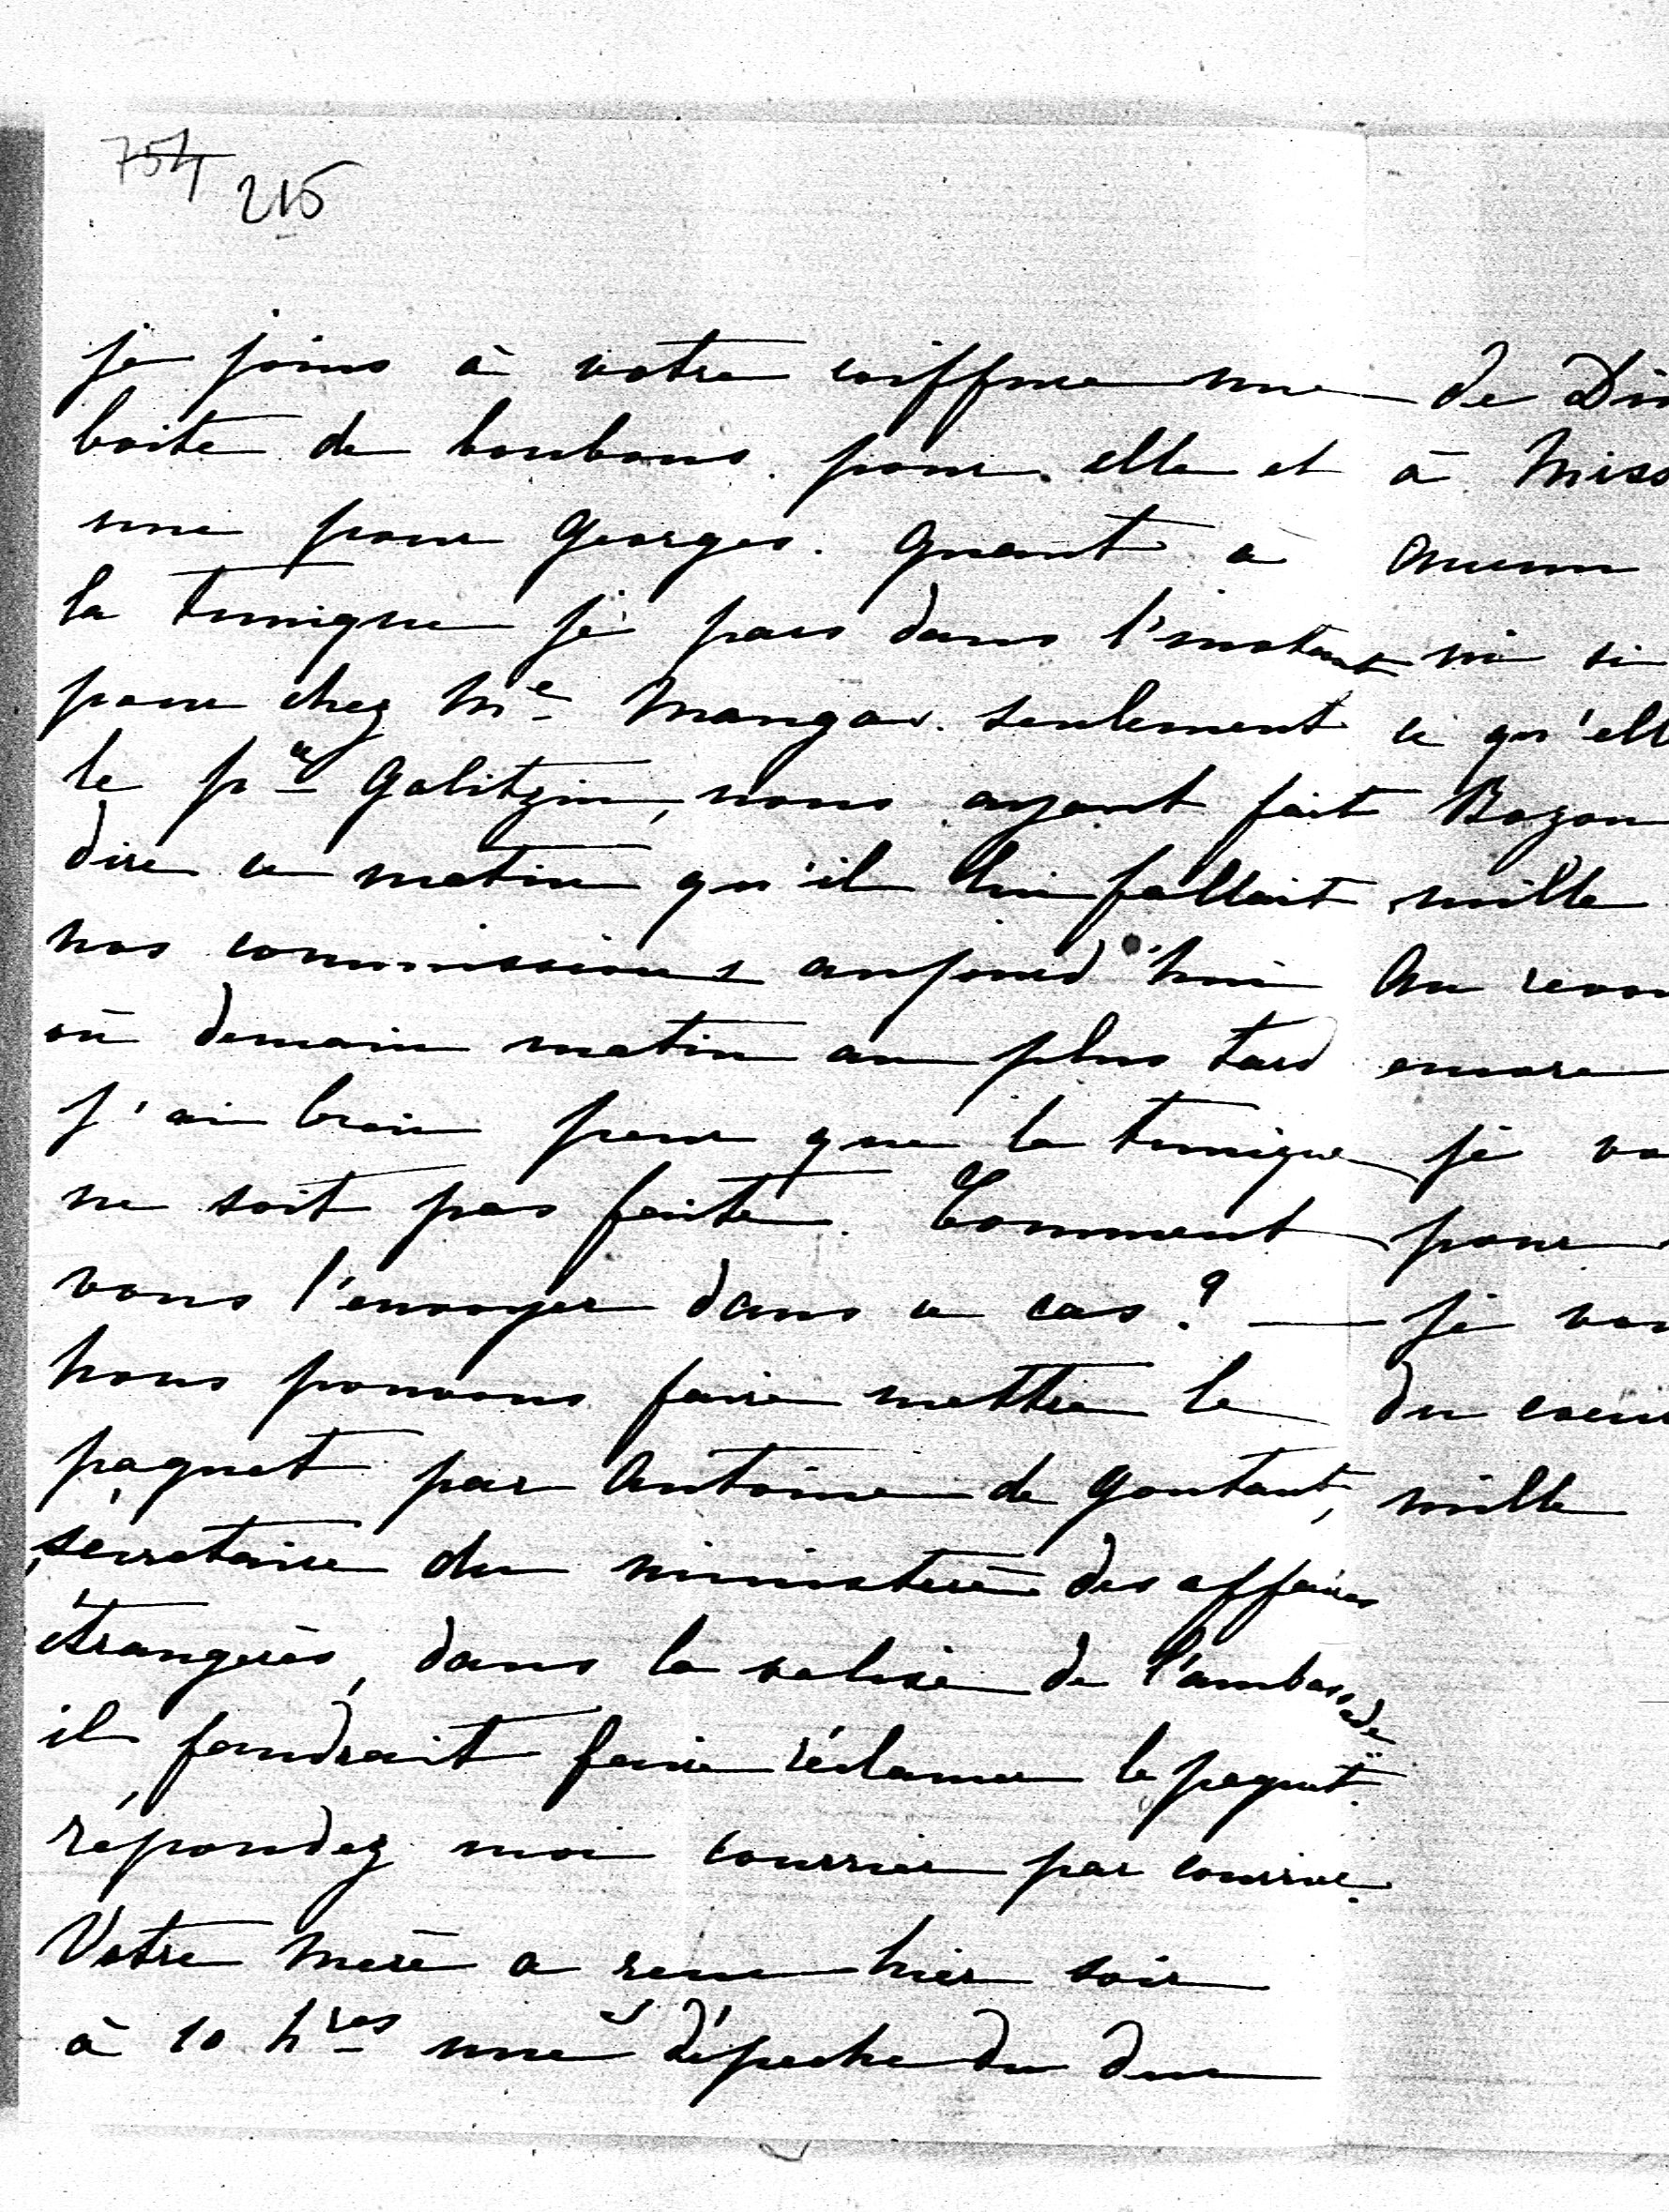 754 215
je joins à votre coiffure une
boite de bonbons pour elle et
une pour Georges. quant à
la tunique je pars dans l'instant
pour chez Me Mangas. seulement
le pce Galitzin, nous ayant fait
dire ce matin qu'il lui fallait
nos commissions aujourd'hui
où demain matin au plus tard
j'ai bien peur que la tunique
ne soit pas faite. Comment
vous l'envoyer dans ce cas ? —
nous pouvons faire mettre le
paquet par Antoine de Gontaut,
secretaire du ministère des affaires
étrangerès, dans la valise de l'ambassade
il faudrait faire réclamer le paquet.
répondez moi courrier par courrier.
Votre merè a recu hier soir
à 10 hres une dépeche du duc
de
à Miss
aucun
ni si
ce qu'ell
Bozon
mille
Au revo
encore
je vo
pour
je vou
du coeur
mille